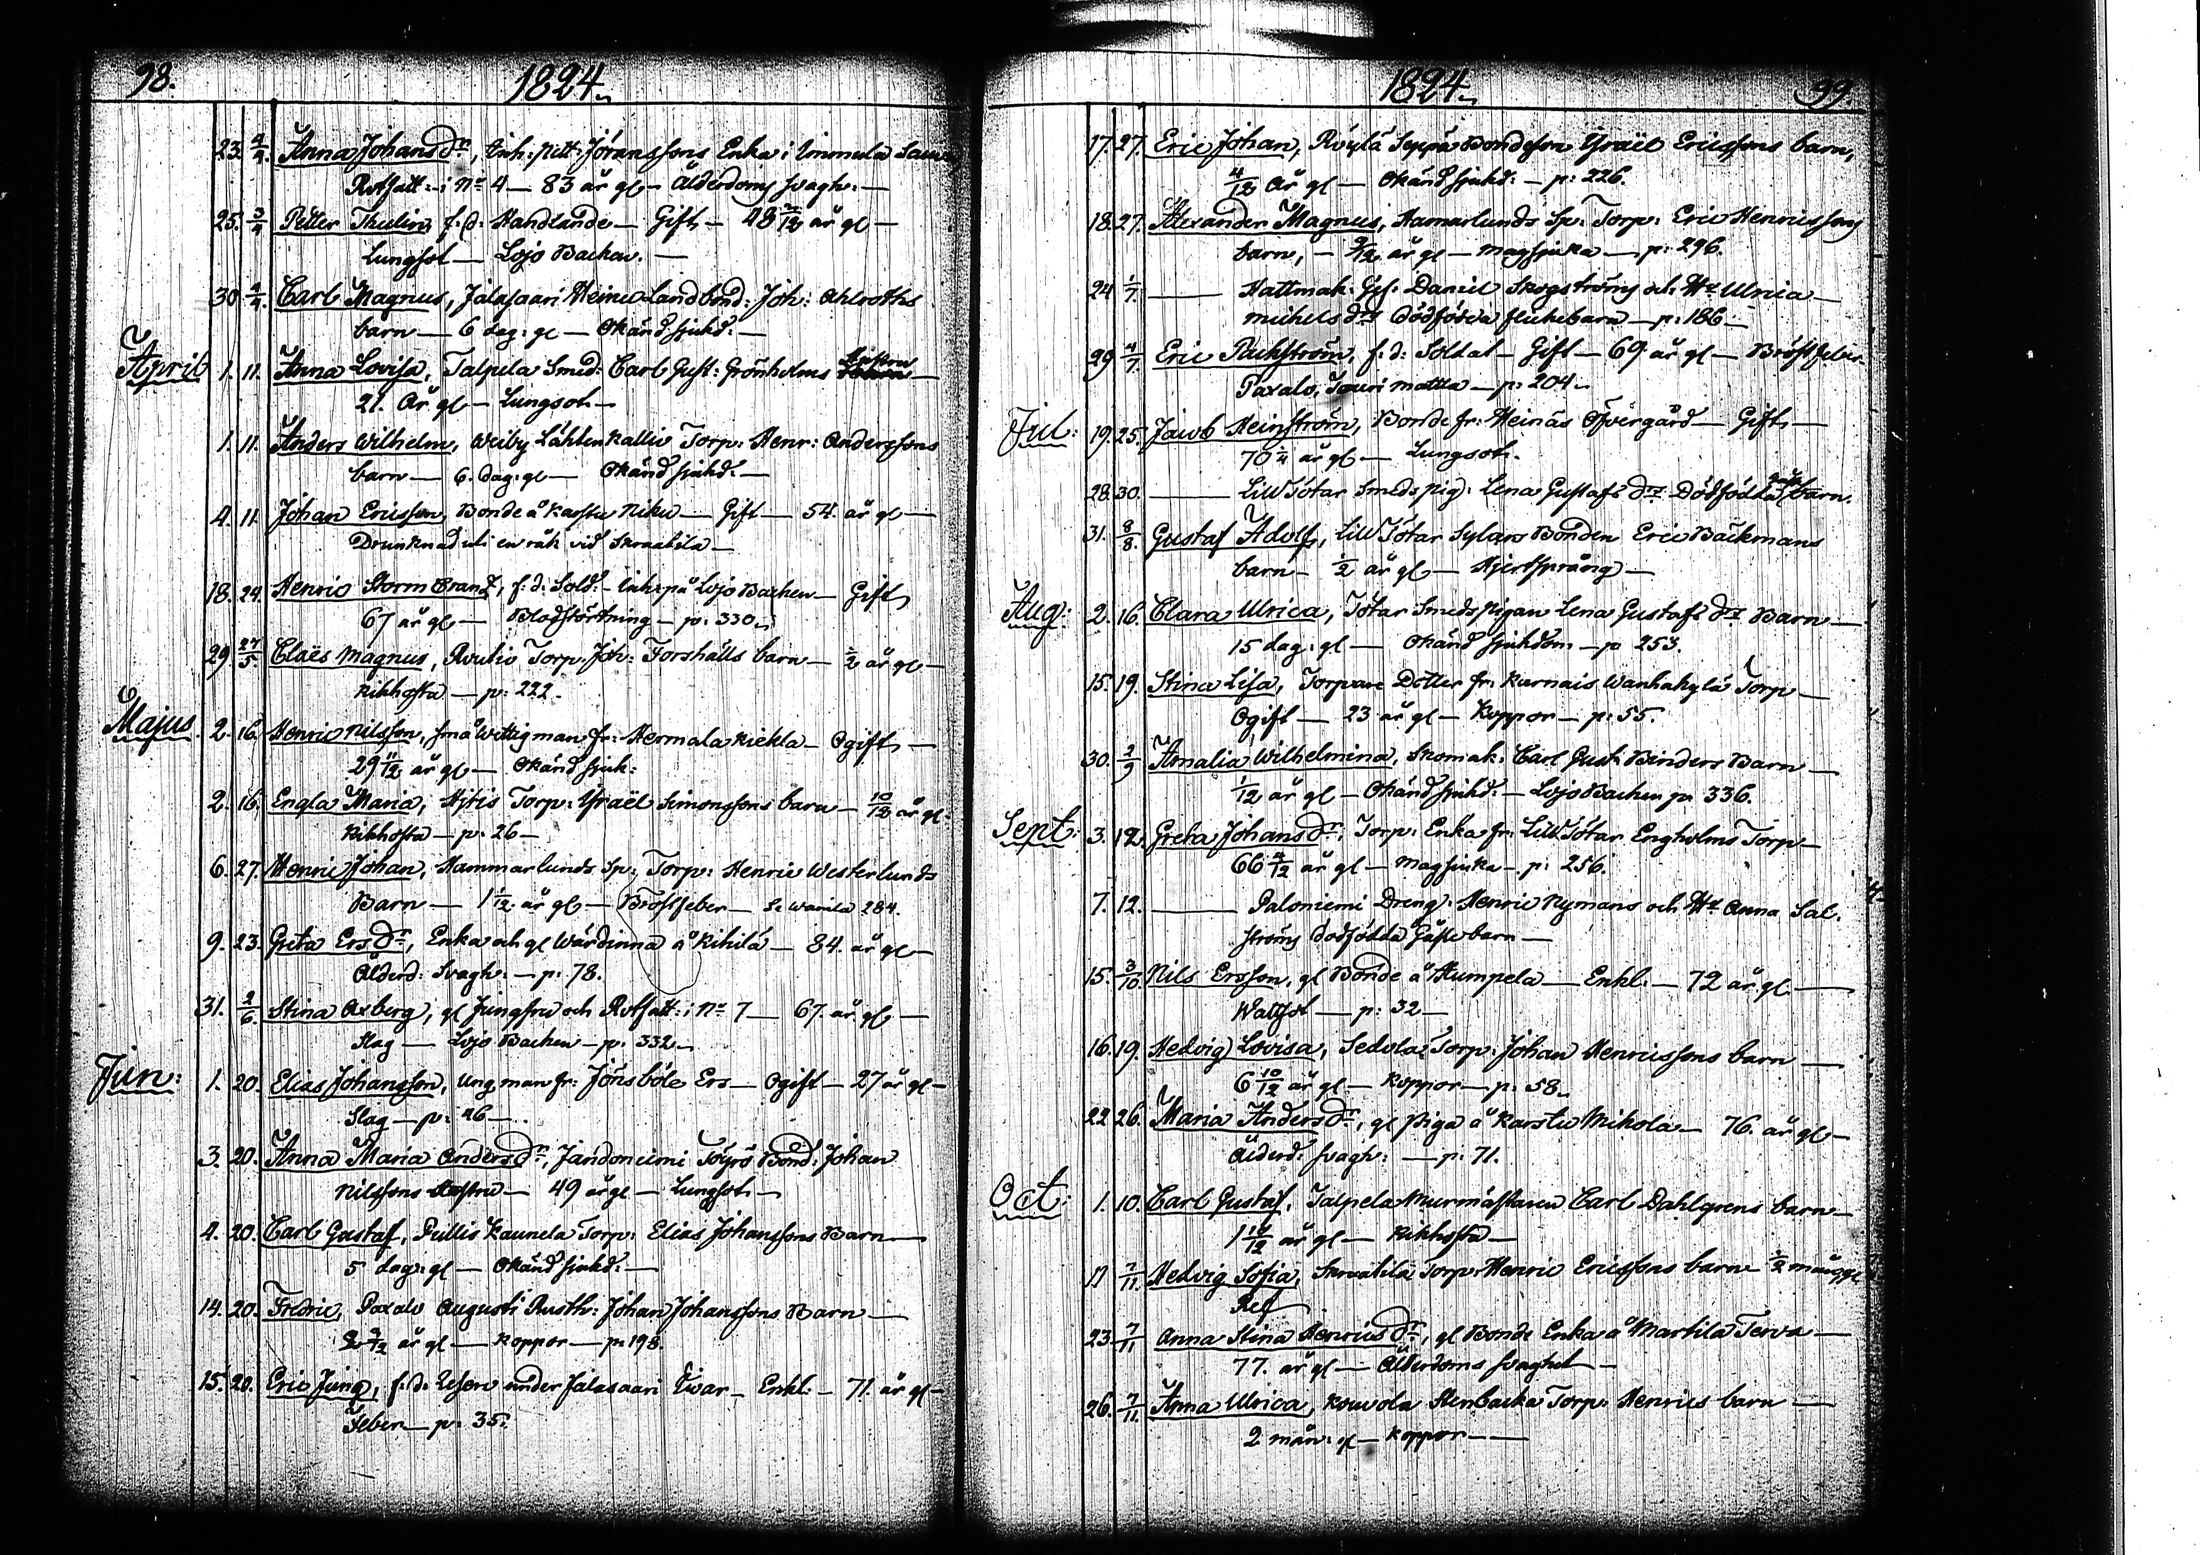 98. 1824.
23. 4/4. Anna Johans dr, Inh: Pett: Joranssons Enka i Immula
Rotfatt: i No 4 — 83 år gl — Ålderdoms svagh: —
25. 3/4 Petter Thulin, f. d. Handlande — Gift — 48 år gl —
Lungsot — Lojo Backen. —
30 4/4. Carl Magnus, Jalasaari Heine Landbond: Joh: Ahlroths
barn — 6 dag: gl — Okänd sjukd: —
April 1. 11. Anna Lovisa, Talpela Smed: Carl Gust: Grönholms —
21. År gl — Lungsot —
1. 11. Anders Wilhelm, Weiby Lähten Kallio Torp: Henr: Anderssons
barn — 6. dag: gl — Okänd sjukd: —
4. 11 Johan Ericsson, Bonde å Karstu Niku — Gift — 54. år gl —
Drunknad uti en råk vid Skraatila —
18. 24. Henric Storm Crantz, f: d: Sold: - Inh: på Lojo Backen — Gift
67 år gl — Blodstörtning — p: 330.
29 27/5 Claës Magnus, Routio Torp. Joh: Forshälls barn — 1/2 år gl —
Kikhosta — p: 222.
Majus. 2. 16. Henric Nilsson, små Wittigman fr: Hermala Kiekla — Ogift —
29 11/12 år gl — Okänd sjuk:
2. 16. Engla Maria, Hjtis Torp: Ysraël Simonssons barn — 10/12 år gl:
Kikhosta — p: 26 —
6. 27. Henric Johan, Hammarlunds Sp: Torp: Henric Westerlunds
Barn — 1 1/12 år gl — Bröstfeber — 284.
9. 23. Greta Ers dr, Enka och gl Wärdinna å Kihilä — 84. år gl —
Ålderd: Svagh: — p: 78.
31. 2/6. Stina Axberg, gl Jungfru och Rotfatt: i No 7 — 67. år gl —
Slag — Lojo Backen — p: 332.
Jun: 1. 20. Elias Johansson, Ung man fr: Jönsböle Ers — Ogift — 27 år gl —
Slag — p: 46 —
3. 20. Anna Maria Anders dr, Jandoniemi Töyrö Bond: Johan
Nilssons Hustru — 49 år gl — Lungsot —
4. 20. Carl Gustaf, Pullis Kaunela Torp: Elias Johanssons Barn —
5 dag: gl — Okänd sjukd: —
14. 20. Fredric, Paxalo Augusti Rusth: Johan Johanssons Barn —
2 år gl — Koppor — p: 198.
15. 20. Eric Jung, f: d: under Jalasaari Iivar — Enkl: — 71. år gl —
Feber — p: 35.
1824. 99.
17. 27. Eric Johan, Röylä Seppä Bondeson Ysraël Ericssons barn,
4/12 År gl — Okänd sjukd: — p: 226.
18. 27. Alexander Magnus, Hamarlunds Sp: Torp: Eric Henricssons
barn, — 9/12 år gl — Magsjuka — p: 296.
24 1/7. — Hattmak: Ges: Daniel Skogströms och Hu Ulrica —
Michels drs dödfödda flickebarn — p: 186 —
29 4/7. Eric Packström, f: d: Soldat — Gift — 69 år gl — Bröstfeber
Paxalo, Touri matta — p: 204 —
Jul: 19. 25. Jacob Heinström, Bonde fr: Heinäs Öfvergård — Gift —
70 1/4 år gl — Lungsot.
28. 30. — Lill Tötar Smeds pig: Lena Gustafs drs Dödfödda barn.
31. 8/8. Gustaf Adolf, Lill Tötar Sylars Bonden Eric Bäckmans
barn — 1/2 år gl — Hjertsprång —
Aug: 2. 16. Clara Ulrica, Tötar Smedspigan Lena Gustafs drs Barn —
15 dag: gl — Okänd sjukdom — p 253.
15. 19. Stina Lisa, Torpare Dotter fr: Karnais Wanhakylä Torp —
Ogift — 23 år gl — Koppor — p: 55.
30. 2/9 Amalia Wilhelmina, Skomak: Carl Gust: Binders Barn —
1/12 år gl — Okänd sjukd: — Lojo Backen p: 336.
Sept: 3. 12. Greta Johans dr, Torp: Enka fr: Lill Tötar Engholms Torp —
66 4/12 år gl — Magsjuka — p: 256.
7. 12. — Paloniemi Dreng: Henric Nymans och Hu Anna Sal-
ströms dödfödda Gåsse barn —
15. 3/10 Nils Ersson, gl Bonde å Humpela — Enkl: — 72 år gl —
Wattsot — p: 32 —
16. 19. Hedvig Lovisa, Sedola Torp: Johan Henricssons barn —
6 10/12 år gl — Koppor — p: 58.
22 26. Maria Anders dr, gl piga å Karstu Mikola — 76. år gl —
Ålderd: svagh: — p: 71.
Oct: 1. 10. Carl Gustaf, Talpela Murmästaren Carl Dahlgrens barn —
1 10/12 år gl — Kikhosta —
17 7/11. Hedvig Sofia, Skraatila Torp: Henric Ericssons barn 1/2 mån: gl
Ref
23. 7/11. Anna Stina Henrics dr, gl Bonde Enka å Martila Terva —
77. år gl — Ålderdoms svaghet —
26. 7/11. Anna Ulrica, Kouvola Stenbacka Torp: Henrics barn —
2 mån: gl — Koppor —